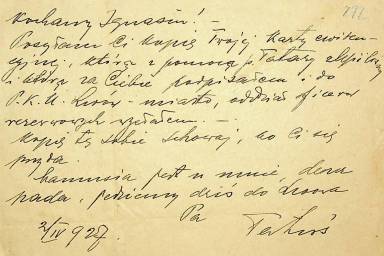 Kochany Ignasiu! –
Posyłam Ci kopię Twojej karty ewiden-
cyjnej, którą z pomocą p. Tatary
i którą za Ciebie podpisałem i do
P.K.U. Lwów – miasto, oddział oficerów
rezerwowych wysłałem. –
Kopię tę sobie schowaj, bo Ci się
przyda.
Mamusia jest u mnie, deszcz
pada, jedziemy dziś do Lwowa
Pa
2/IV 927.